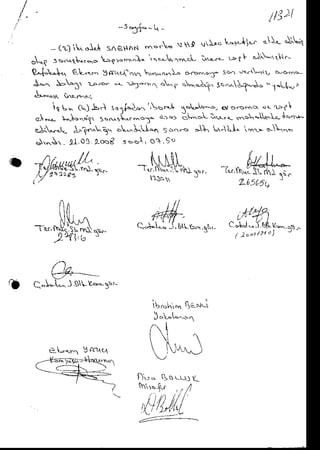 11321
-Sayfa-4-
-(2) iki adet SAEHAN marka VHS video kasetler elde edilmiş
olup soruşturma kapsamında incelenmek üzere zapt edilmiştir.
Refakatçi Ekrem YAHCI'nın huzurunda aramaya son verilmiş, arama-
dan dolayı zarar ve ziyanın olup olmadığı sorulduğunda "yoktur"
demesi üzerine;
İş bu (4) dört sayfadan ibaret yakalama, ev arama ve zapt
etme tutanağı soruşturmaya esas olmak üzere mahallinde tanzim
edilerek doğruluğu okunduktan sonra alt birlikte imza altına
alındı. 21.03.2008 Saat: 07.50
Ter.Müc.Şb.Md.gör.
Ter.Müc.Şb.Md.gör.
265654
Ter.Müc.Şb.Md.gör.
Çatalca J.Blk.Kom.gör.
Çatalca J.Blk.Kom.gör.
Çatalca J.Blk.Kom.gör.
İbrahim BENLİ
Yakalanan
Ekrem YAHCI
Rıza BOLLUK
Misafir